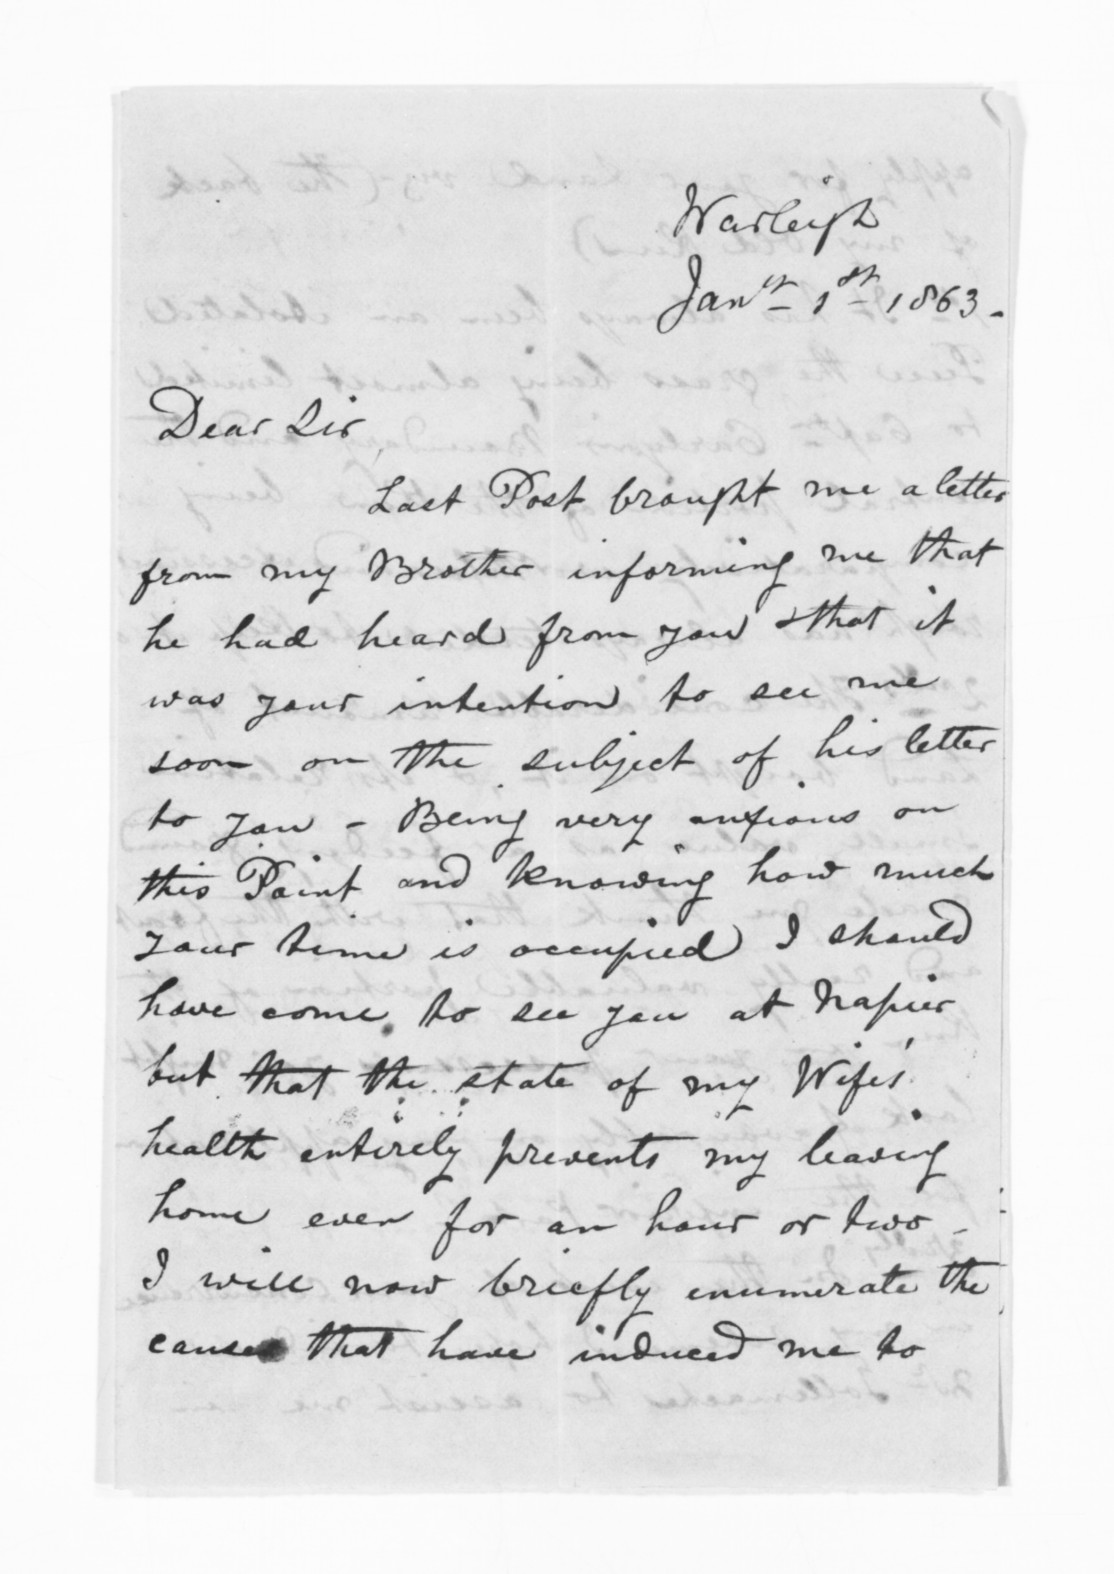 Warleigh
Jany 1st 1863.
Dear Sir,
Last Post brought me a letter
from my Brother informing me that
he had heard from you & that it
was your intention to see me
soon on the subject of his letter
to you - Being very anxious on
this Point and knowing how much
your time is occupied I should
have come to see you at Napier
but that the state of my Wife's
health entirely prevents my leaving
home even for an hour or two -
I will now briefly enumerate the
causes that have induced me to